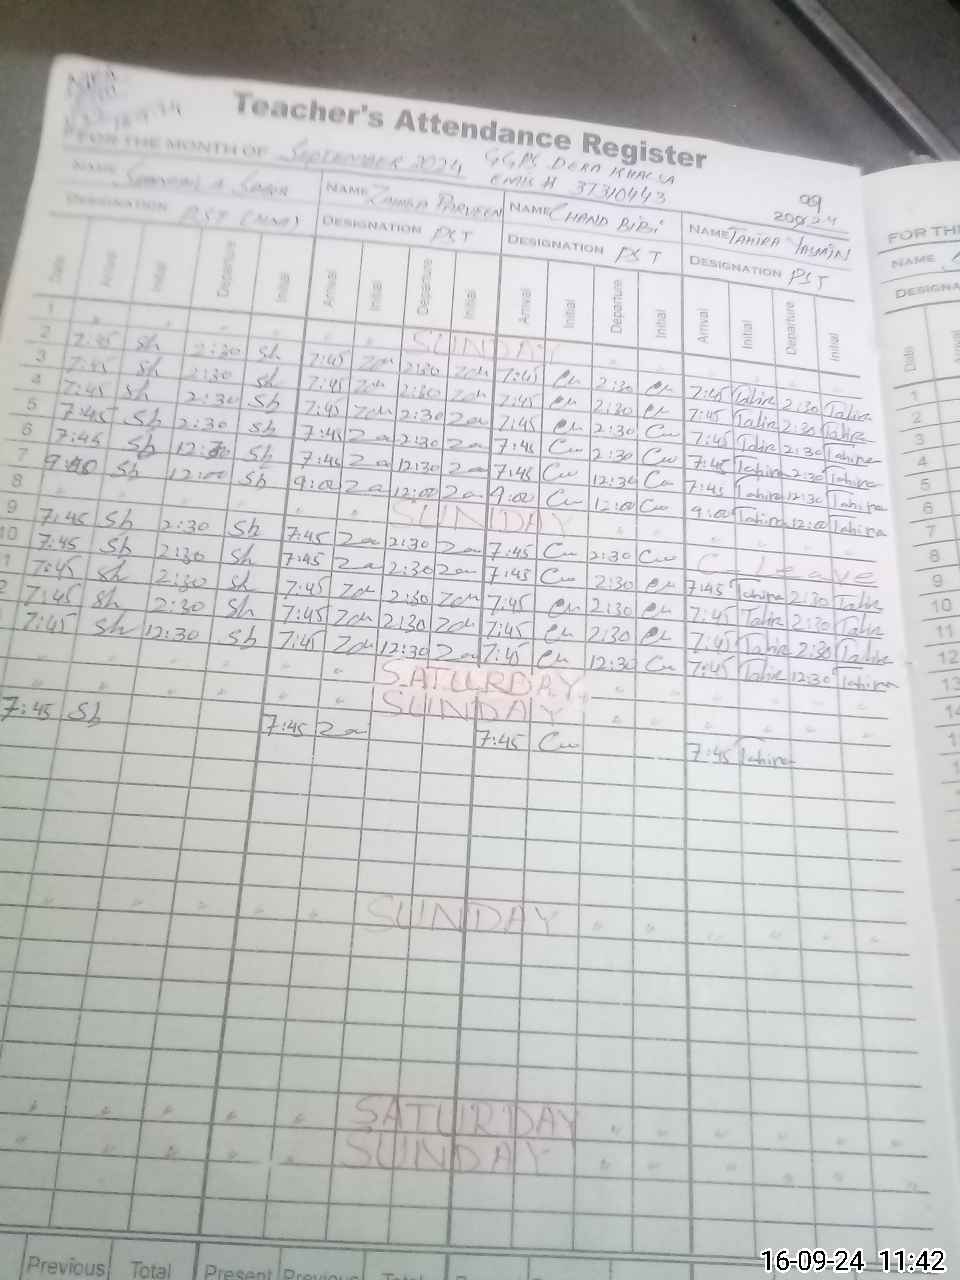 Teacher's Attendance Register
FOR THE MONTH OF September 2024 GGPS DERA KHALSA
EMIS # 37310443
09
NAME NAME ZAHIRA PARVEEN NAME CHAND BiBi NAME TAHIRA YASMIN
DESIGNATION PST DESIGNATION PST DESIGNATION PST DESIGNATION PST
Date Arrival Initial Departure Initial Arrival Initial Departure Initial Arrival Initial Departure Initial Arrival Initial Departure Initial
1 SUNDAY
2 7:45 Sh 2:30 Sh 7:45 Za 2:30 Za 7:45 Cu 2:30 Cu 7:45 Tahira 2:30 Tahira
3 7:45 Sh 2:30 Sh 7:45 Za 2:30 Za 7:45 Cu 2:30 Cu 7:45 Tahira 2:30 Tahira
4 7:45 Sh 2:30 Sh 7:45 Za 2:30 Za 7:45 Cu 2:30 Cu 7:45 Tahira 2:30 Tahira
5 7:45 Sh 2:30 Sh 7:45 Za 2:30 Za 7:45 Cu 2:30 Cu 7:45 Tahira 2:30 Tahira
6 7:45 Sh 12:30 Sh 7:45 Za 12:30 Za 7:45 Cu 12:30 Cu 7:45 Tahira 12:30 Tahira
7 9:00 Sh 12:00 Sh 9:00 Za 12:00 Za 9:00 Cu 12:00 Cu 9:00 Tahira 12:00 Tahira
8 SUNDAY
9 7:45 Sh 2:30 Sh 7:45 Za 2:30 Za 7:45 Cu 2:30 Cu C Leave
10 7:45 Sh 2:30 Sh 7:45 Za 2:30 Za 7:45 Cu 2:30 Cu 7:45 Tahira 2:30 Tahira
1 7:45 Sh 2:30 Sh 7:45 Za 2:30 Za 7:45 Cu 2:30 Cu 7:45 Tahira 2:30 Tahira
2 7:45 Sh 2:30 Sh 7:45 Za 2:30 Za 7:45 Cu 2:30 Cu 7:45 Tahira 2:30 Tahira
7:45 Sh 12:30 Sh 7:45 Za 12:30 Za 7:45 Cu 12:30 Cu 7:45 Tahira 12:30 Tahira
SATURDAY
SUNDAY
7:45 Sh 7:45 Za 7:45 Cu 7:45 Tahira
SUNDAY
SATURDAY
SUNDAY
Previous Total Present Previous Total
FOR TH
NAME
DESIGNA
Date
1
2
3
4
5
6
7
8
9
10
11
12
13
16-09-24 11:42